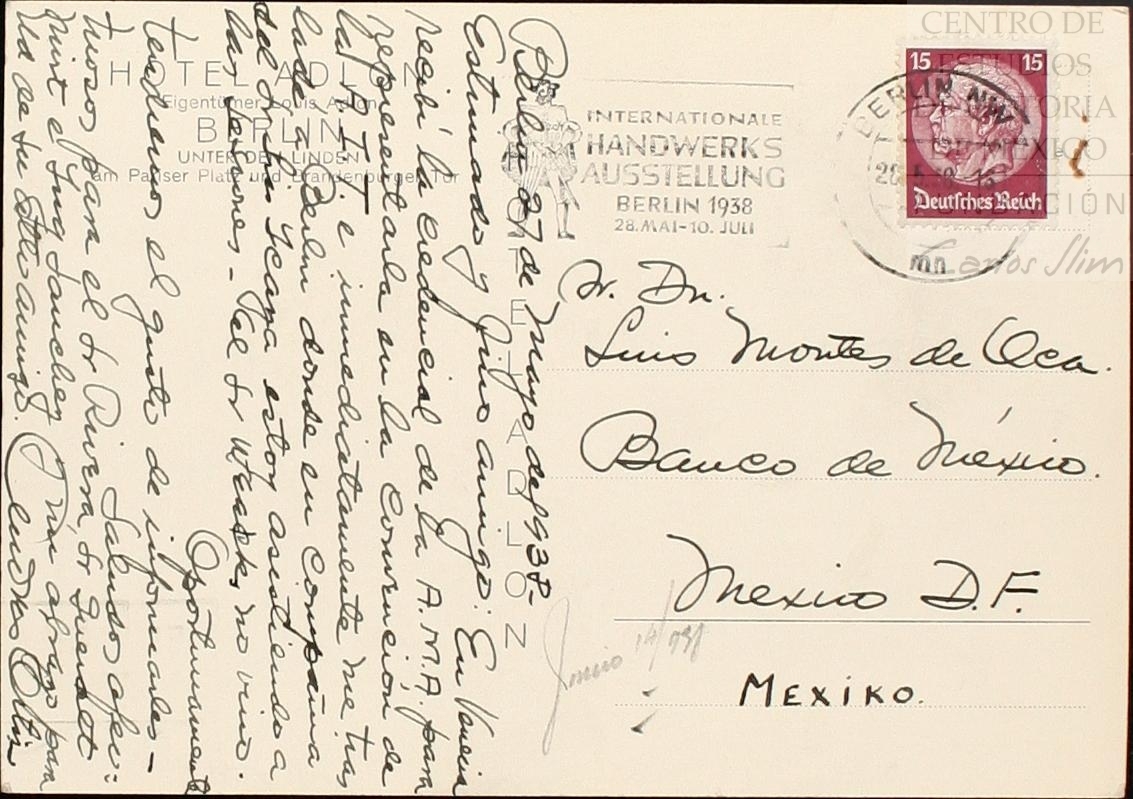 Berlin 27 de Mayo de 1938-
Estimado y fino amigo: En Venecia
recibí la credencial de la A.M.A. para
representarla en la Convención de
la A.I.T. e inmediatamente me tras
ladé a Berlin donde en Compañia
del doctor estoy asistiendo a
las sesiones - Vel Sr no vino.
Oportunamente
tendremos el gusto de informarles -
Saludos afec:
tuosos para el Sr Rivera, Sr
e Ing Sanchez y un abrazo para
Ud de su atto amigo.
HOTEL ADLON
Eigentümer Louis Adlon
BERLIN
UNTER DEN LINDEN
am Pariser Platz und Brandenburger Tor
HOTEL ADLON
INTERNATIONALE
HANDWERKS
AUSSTELLUNG
BERLIN 1938
28.MAI-10. JULI
BERLIN NW
15 15
Deutsches Reich
CENTRO DE
ESTUDIOS
DE HISTORIA
DE MÉXICO
FUNDACIÓN
Carlos Slim
Sr. Dn.
Luis Montes de Oca.
Banco de México.
Mexico D.F.
MEXIKO.
Junio 14/938